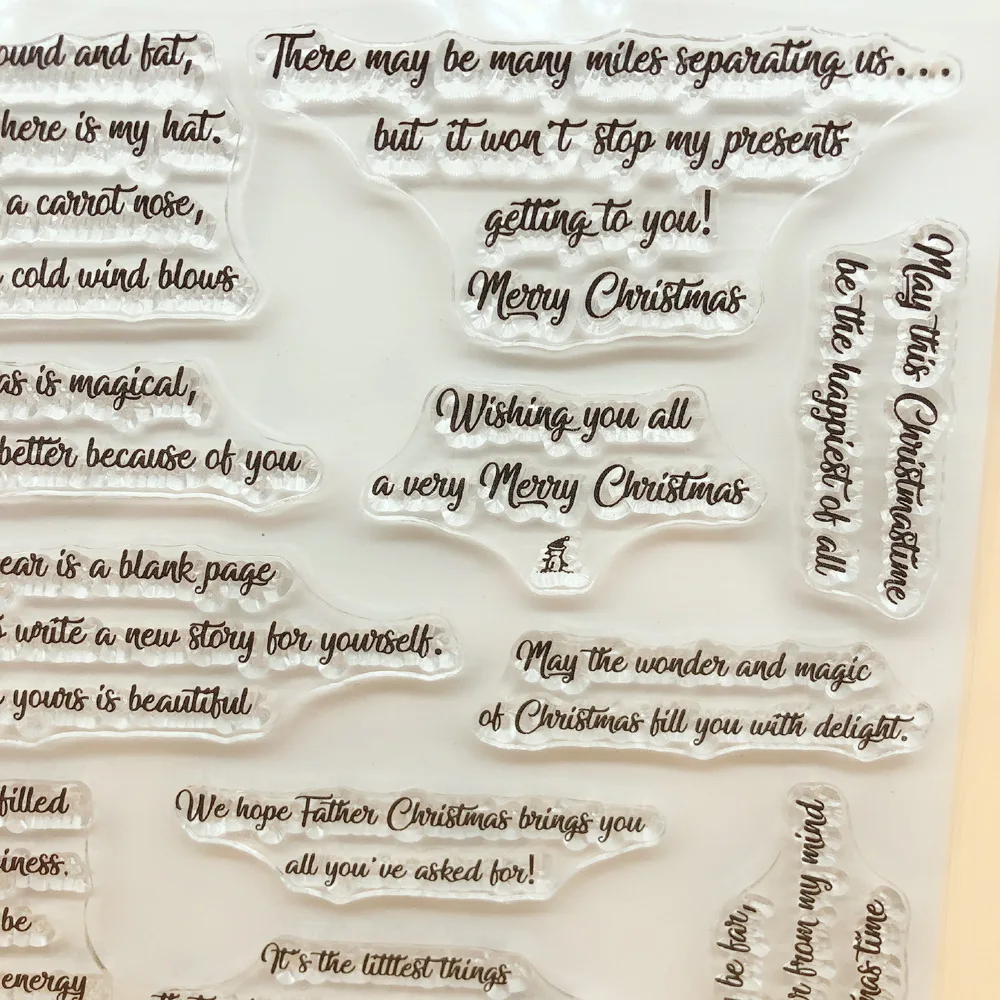 ound and fat,
here is my hat.
a carrot nose,
cold wind blows
There may be many miles separating us....
but it won't stop my presents
getting to you!
Merry Christmas
May this Christmastime
be the happiest of all
as is magical,
better because of you
Wishing you all
a very Merry Christmas
ear is a blank page
write a new story for yourself.
yours is beautiful
May the wonder and magic
of Christmas fill you with delight.
filled
iness.
be
energy
We hope Father Christmas brings you
all you've asked for!
It's the litttlest things
be far,
r from my mind
mas time